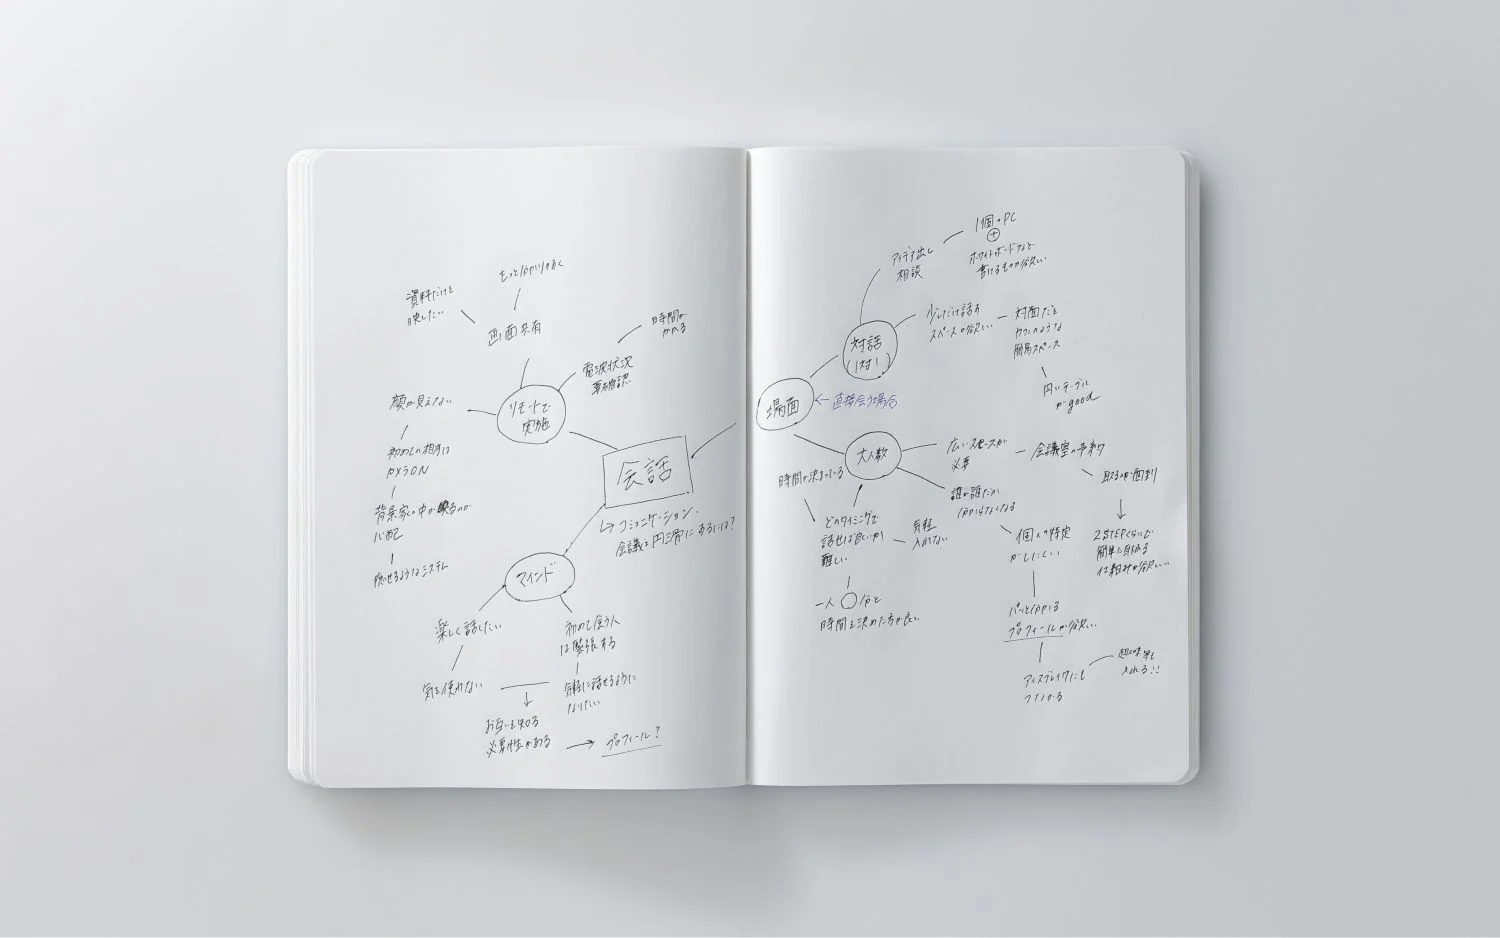 もっと分かりやすく
資料だけを
映したい
画面共有
時間が
かかる
電波状況
要確認
リモートで
実施
顔が見えない
初めての相手は
カメラON
背景家の中が映るのが
心配
隠せるようなシステム
会話
↳ コミュニケーション、
会議を円滑にするには?
マインド
楽しく話したい
気を使わない
初めて会う人
は緊張する
気軽に話せるように
なりたい
お互いを知る
必要性がある
→ プロフィール?
1個のPC
⊕
ホワイトボードなど
書けるものが欲しい
アイデア出し
相談
少しだけ話す
スペースが欲しい
対面だと
カフェのような
簡易スペース
円いテーブル
がgood
対話
(1対1)
場面
← 直接会う場合
大人数
広いスペースが
必要
会議室の予約
取るのが面倒
2STEPくらいで
簡単に取れる
仕組みが欲しい
誰が誰だか
分からなくなる
個人の特定
がしにくい
パッと分かる
プロフィールが欲しい
アイスブレイクにも
つながる
趣味等も
入れる!!
時間が決まっている
どのタイミングで
話せば良いか
難しい
気軽
入れない
一人〇分と
時間を決めた方が良い